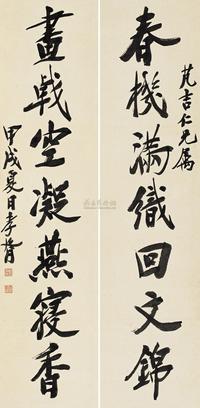 芃吉仁兄屬
春機滿織回文錦
畫戟空凝燕寢香
甲戌夏日孝胥